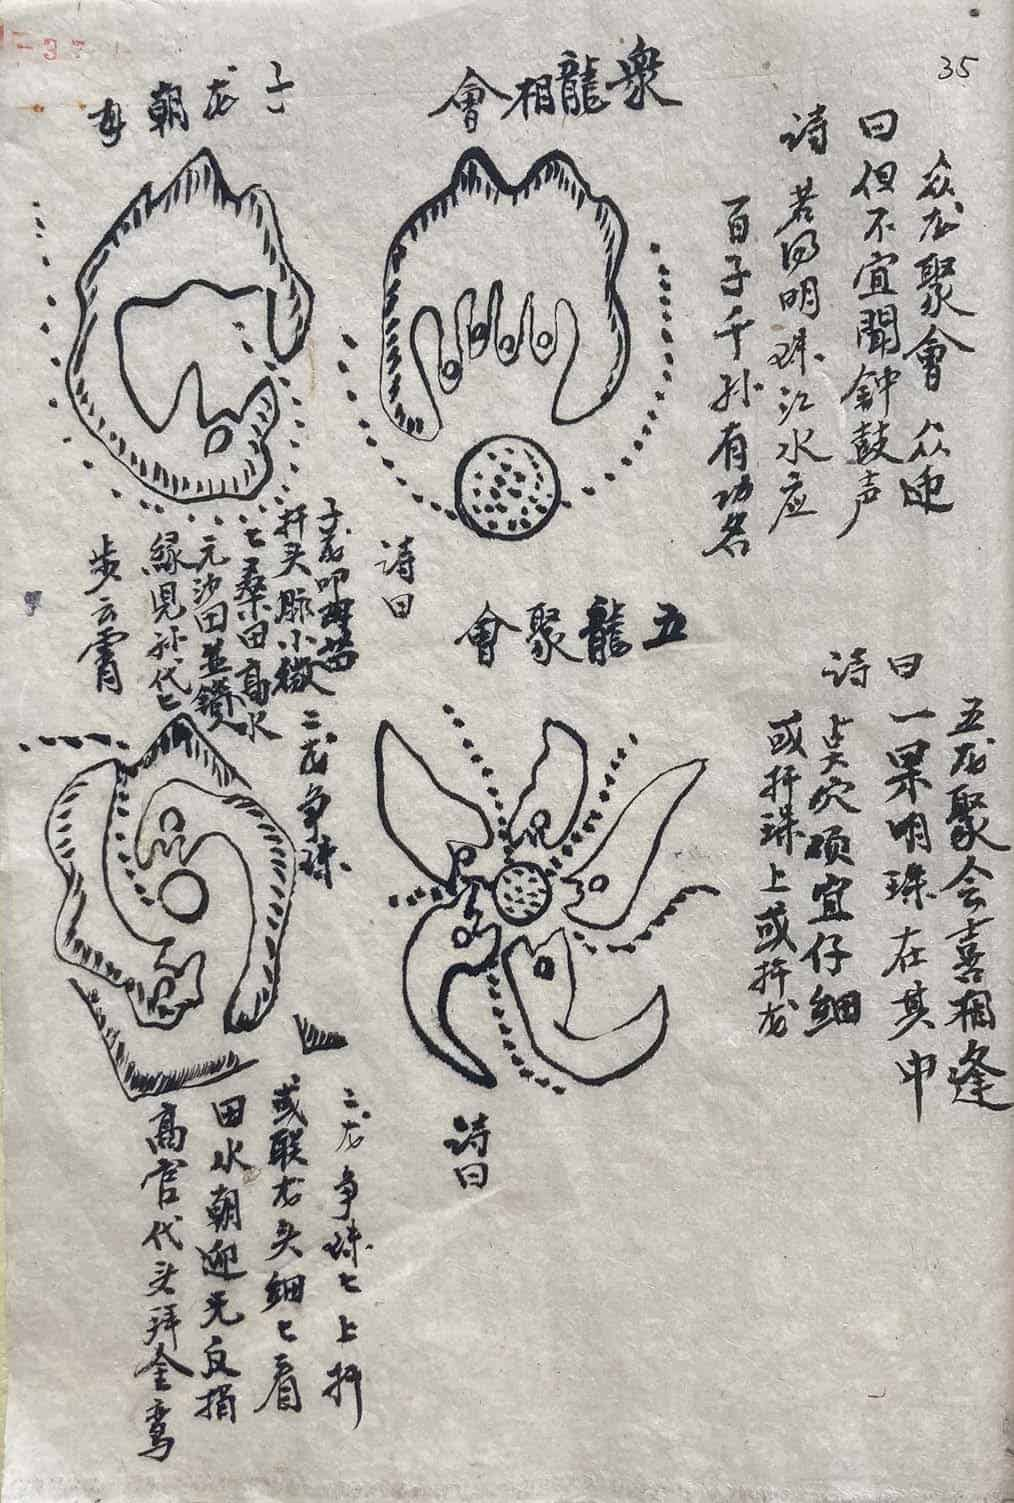 35
众龙聚會众迎
曰但不宜聞鈡鼓声
诗若得明珠江水应
百子千孙有功名
衆龍相會
诗曰
子龙朝母
子龙叩母
扦头脉小微
七桑田高水
元沙田並鑽
緣見孙代七
步云霄
五龙聚会喜相逢
曰一果明珠在其中
诗点穴须宜仔細
或扦珠上或扦龙
五龍聚會
诗曰
二龙争珠
二龙争珠七上扦
或联右头細七看
田水朝迎无反捐
高官代头拜金鸾